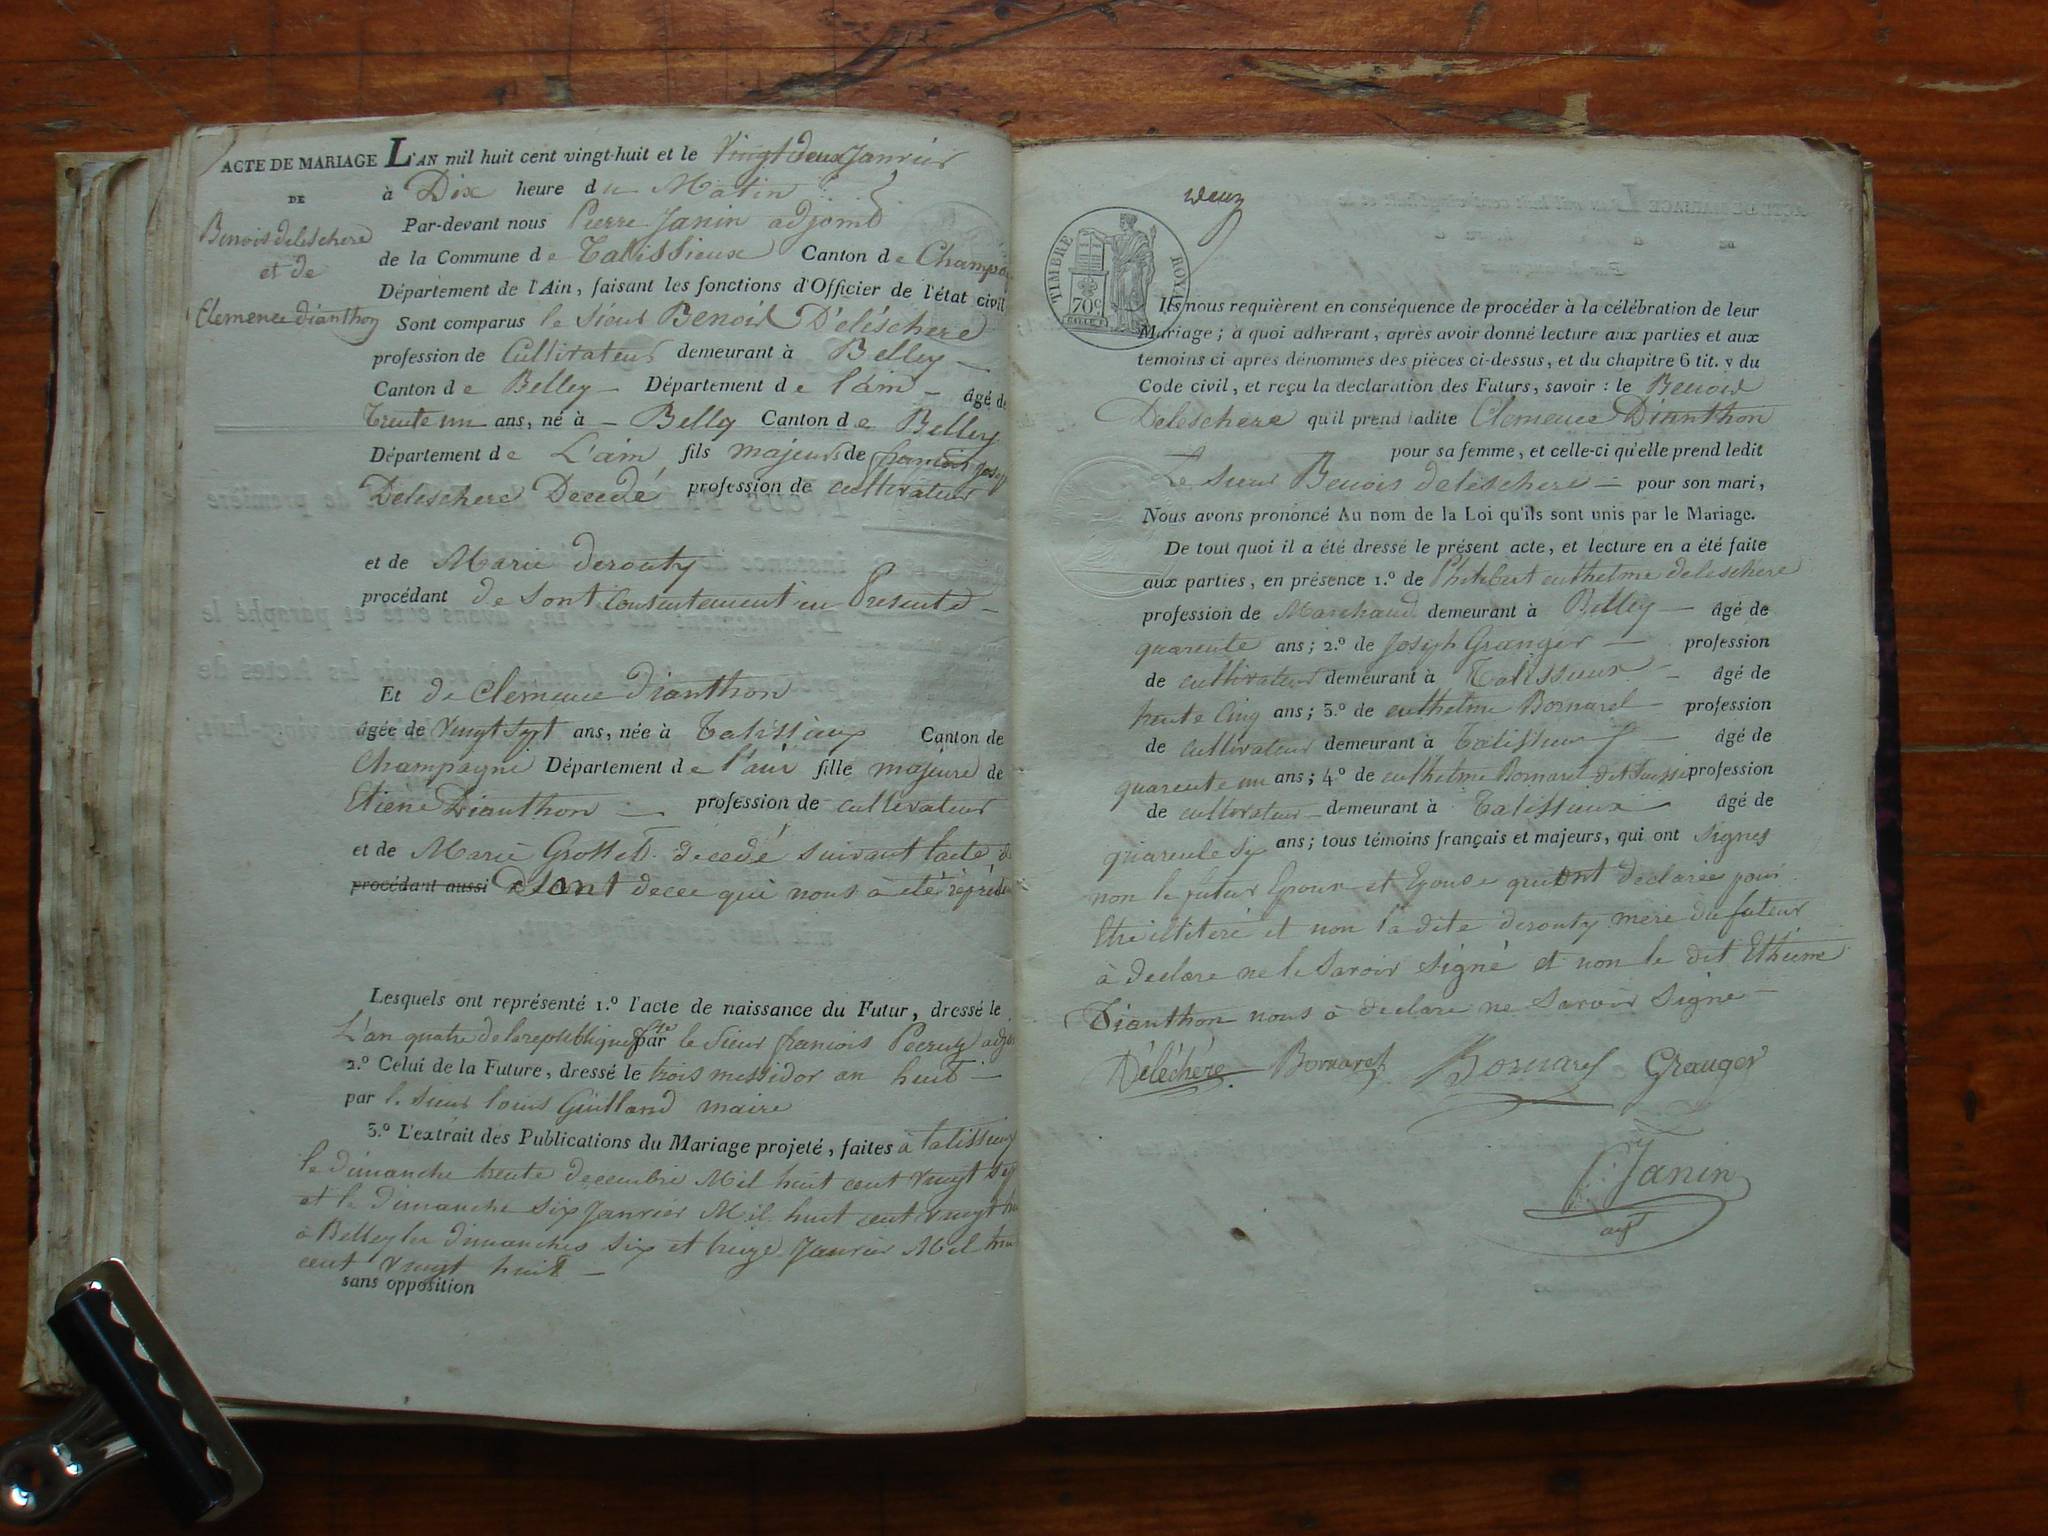 ACTE DE MARIAGE L'AN mil huit cent vingt-huit et le Vingt deux Janvier
DE
à Dix heure du Matin
Benois deleschere
Par-devant nous Pierre Janin adjoint
et de
de la Commune de Talissieux Canton de Champa
Clemence dianthon
Département de l'Ain, faisant les fonctions d'Officier de l'état civil
Sont comparus le Sieur Benoit Déléschere
profession de Cultivateur demeurant à Belley
Canton de Belley Département de l'ain âgé de
trente un ans, né à Belley Canton de Belley
Département de L'ain fils majeur de francois Josep
Deleschere Decedé profession de cultivateur
et de Marie derouty
procédant de sont Consentement en Presente
Et de Clemence dianthon
âgée de vingt sept ans, née à Talissieux Canton de
Champagne Département de l'ain fille majeure de
Etiene Dianthon profession de cultivateur
et de Marie Grosset decedé suivant lacte d
procédant aussi de sont decee qui nous à été représ
Lesquels ont représenté 1.º l'acte de naissance du Futur, dressé le
L'an quatre de la republique par le Sieur francois
2.º Celui de la Future, dressé le trois messidor an huit
par le Sieur louis Guilland maire
3.º L'extrait des Publications du Mariage projeté, faites à talissieux
le dimanche trente decembre Mil huit cent vingt sep
et le dimanche six Janvier Mil huit cent vingt hui
à Belley les dimanches six et treize Janvier Mil hui
cent vingt huit
sans opposition
deux
TIMBRE ROYAL
70c
Ils nous requièrent en conséquence de procéder à la célébration de leur
Mariage; à quoi adhérant, après avoir donné lecture aux parties et aux
témoins ci après dénommés des pièces ci-dessus, et du chapitre 6 tit. v du
Code civil, et reçu la déclaration des Futurs, savoir : le Benoit
Deleschere qu'il prend ladite Clemence Dianthon
pour sa femme, et celle-ci qu'elle prend ledit
Le Sieur Benois deleschere pour son mari,
Nous avons prononcé Au nom de la Loi qu'ils sont unis par le Mariage.
De tout quoi il a été dressé le présent acte, et lecture en a été faite
aux parties, en présence 1.º de Philibert enthelme deleschere
profession de Marchand demeurant à Belley âgé de
quarente ans; 2.º de Joseph Granger profession
de cultivateur demeurant à Talissieux âgé de
trente Cinq ans; 3.º de enthelme Bornarel profession
de cultivateur demeurant à Talissieux âgé de
quarente un ans; 4º de enthelme Bornarel dit profession
de cultivateur demeurant à Talissieux âgé de
quarente six ans; tous témoins français et majeurs, qui ont signes
non le futur Epoux et Epouse qui ont declarée pour
Etre illiteré et non la dite derouty mere du futeur
à declare ne le Savoir signé et non le dit Ethiene
Dianthon nous à declare ne Savoir Signe
Déléchère Bornarel Bornarel Granger
P. Janin
adjt